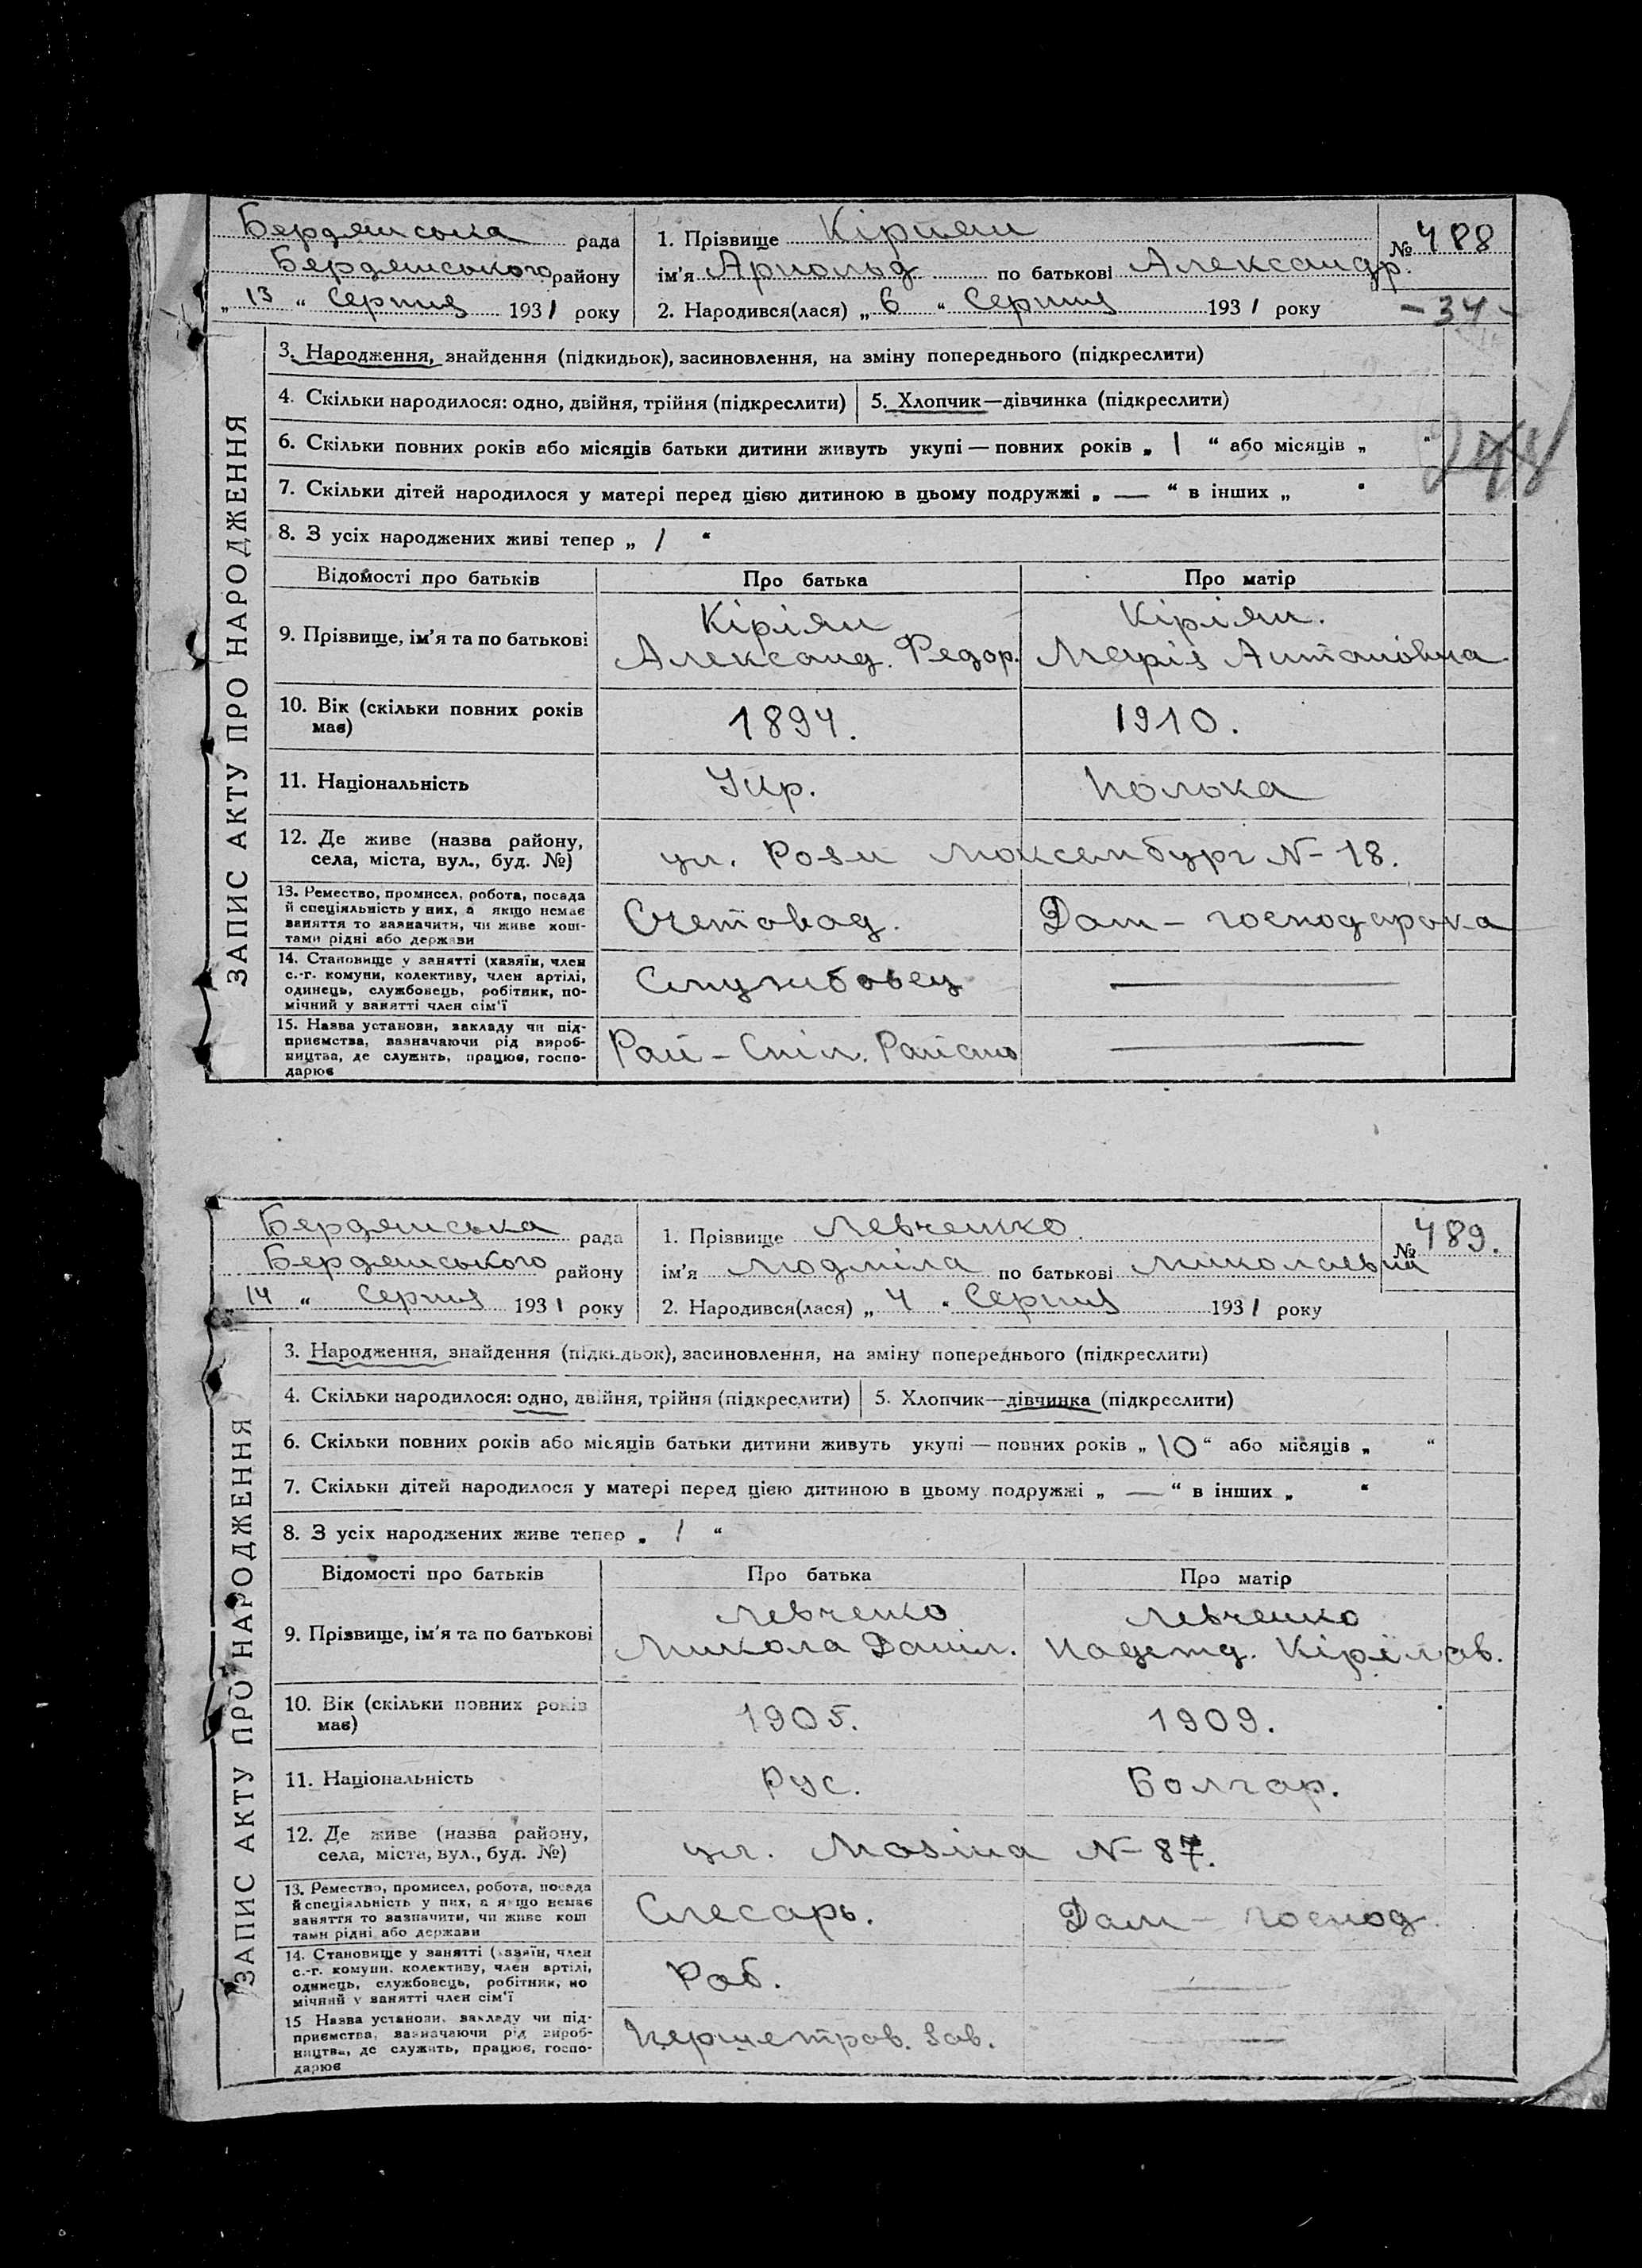 Бердянська рада
Бердянського району
„ 13 “ Серпня 1931 року
1. Прізвище Кіріяк
ім'я Арнольд по батькові Александр.
2. Народився(лася) „ 6 “ Серпня 1931 року
№ 488
– 34 –
ЗАПИС АКТУ ПРО НАРОДЖЕННЯ
3. Народження, знайдення (підкидьок), засиновлення, на зміну попереднього (підкреслити)
4. Скільки народилося: одно, двійня, трійня (підкреслити) 5. Хлопчик—дівчинка (підкреслити)
6. Скільки повних років або місяців батьки дитини живуть укупі — повних років „ 1 “ або місяців „ “
7. Скільки дітей народилося у матері перед цією дитиною в цьому подружжі „ — “ в інших „ “
8. З усіх народжених живі тепер „ 1 “
Відомості про батьків Про батька Про матір
9. Прізвище, ім'я та по батькові
Кіріян Кіріян.
Александ. Федор. Марія Антоновна
10. Вік (скільки повних років
має)
1894. 1910.
11. Національність Укр. Полька
12. Де живе (назва району,
села, міста, вул., буд. №)
ул. Рози Люксембург N– 18.
13. Ремество, промисел, робота, посада
й спеціяльність у них, а якщо немає
заняття то зазначити, чи живе кош-
тами рідні або держави
Счетовод. Дом – господарка
14. Становище у занятті (хазяїн, член
с.-г. комуни, колективу, член артілі,
одинець, службовець, робітник, по-
мічний у занятті член сім'ї
Службовец —
15. Назва установи, закладу чи під-
приємства, зазначаючи рід вироб-
ництва, де служить, працює, госпо-
дарює
Рай – Спіл. —
Бердянська рада
Бердянського району
14 “ Серпня 1931 року
1. Прізвище Левченко.
ім'я Людміла по батькові Миколаевна
2. Народився(лася) „ 4 “ Серпня 1931 року
№ 489.
ЗАПИС АКТУ ПРО НАРОДЖЕННЯ
3. Народження, знайдення (підкидьок), засиновлення, на зміну попереднього (підкреслити)
4. Скільки народилося: одно, двійня, трійня (підкреслити) 5. Хлопчик—дівчинка (підкреслити)
6. Скільки повних років або місяців батьки дитини живуть укупі — повних років „ 10 “ або місяців „ “
7. Скільки дітей народилося у матері перед цією дитиною в цьому подружжі „ — “ в інших „ “
8. З усіх народжених живе тепер „ 1 “
Відомості про батьків Про батька Про матір
9. Прізвище, ім'я та по батькові
Левченко Левченко
Микола Даніл. Надежд. Кірілов.
10. Вік (скільки повних років
має)
1905. 1909.
11. Національність Рус. Болгар.
12. Де живе (назва району,
села, міста, вул., буд. №)
ул. Мазіна N– 87.
13. Ремество, промисел, робота, посада
й спеціяльність у них, а якщо немає
заняття то зазначити, чи живе кош
тами рідні або держави
Слесарь. Дом – господ.
14. Становище у занятті (хазяїн, член
с.-г. комуни, колективу, член артілі,
одинець, службовець, робітник, по
мічний у занятті член сім'ї
Роб. —
15 Назва установи, закладу чи під-
приємства, зазначаючи рід вироб-
ництва, де служить, працює, госпо-
дарює
Першетрав. Зав. —